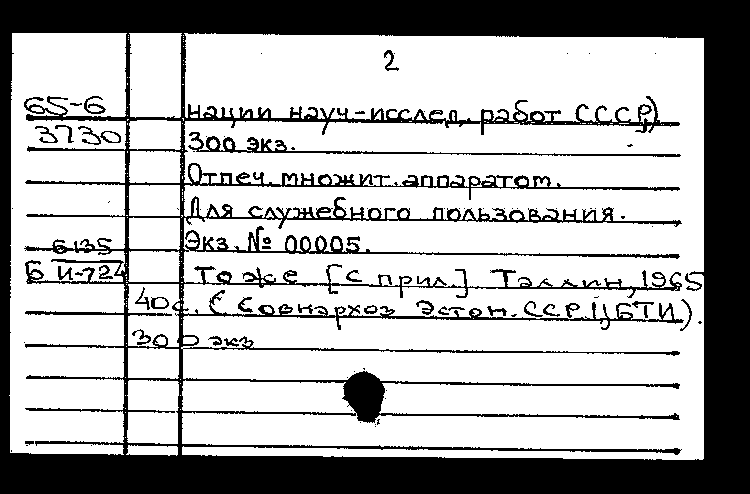 2
65-6 нации науч-исслед. работ СССР)
3730 300 экз.
Отпеч. множит. аппаратом.
Для служебного пользования.
6135 Экз. № 00005.
Б И-724 То же [с прил.] Таллин, 1965
40с. (Совнархоз Эстон. ССР. ЦБТИ).
300 экз